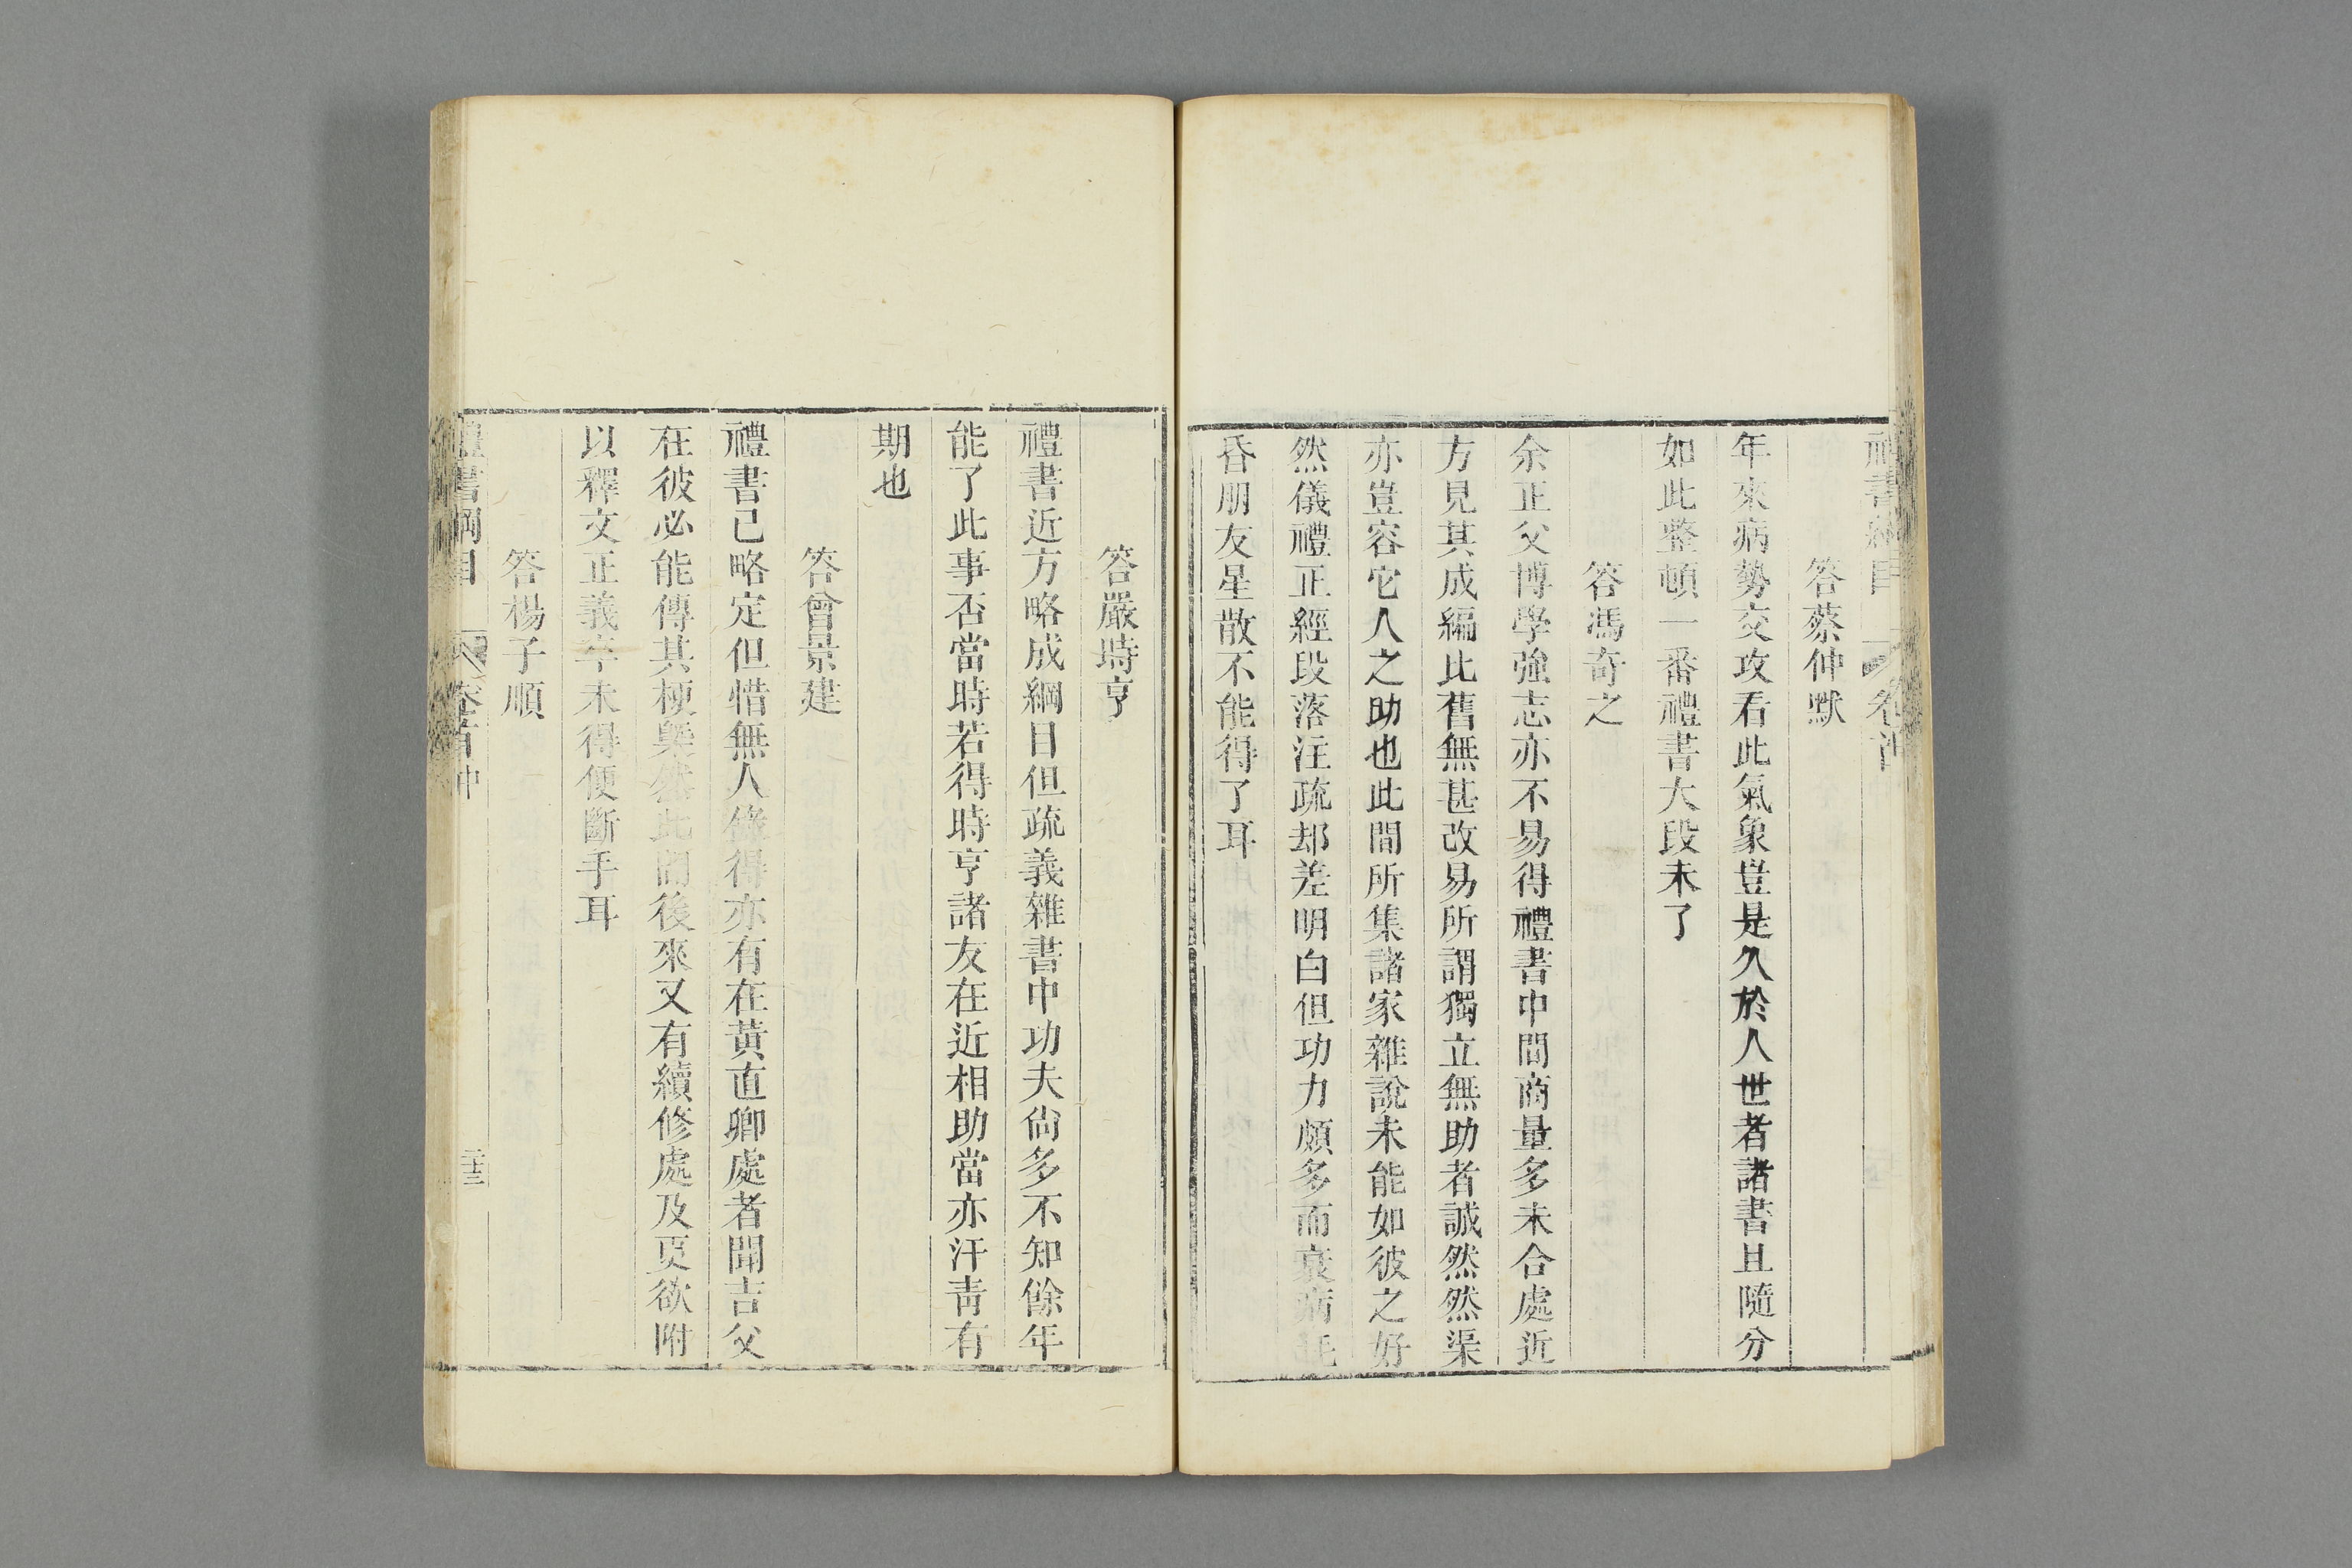 禮書綱目 卷首
答蔡仲默
年來病勢交攻看此氣象豈是久於人世者諸書且隨分
如此整頓一番禮書大段未了
答馮奇之
余正父博學強志亦不易得禮書中間商量多未合處近
方見其成編比舊無甚改易所謂獨立無助者誠然然渠
亦豈容它人之助也此間所集諸家雜說未能如彼之好
然儀禮正經段落注疏却差明白但功力頗多而衰病耗
昏朋友星散不能得了耳
答嚴時亨
禮書近方略成綱目但疏義雜書中功夫尙多不知餘年
能了此事否當時若得時亨諸友在近相助當亦汗靑有
期也
答曾景建
禮書已略定但惜無人錄得亦有在黃直卿處者聞吉父
在彼必能傳其梗槩然此間後來又有續修處及更欲附
以釋文正義卒未得便斷手耳
答楊子順
禮書綱目 卷首中 二十三